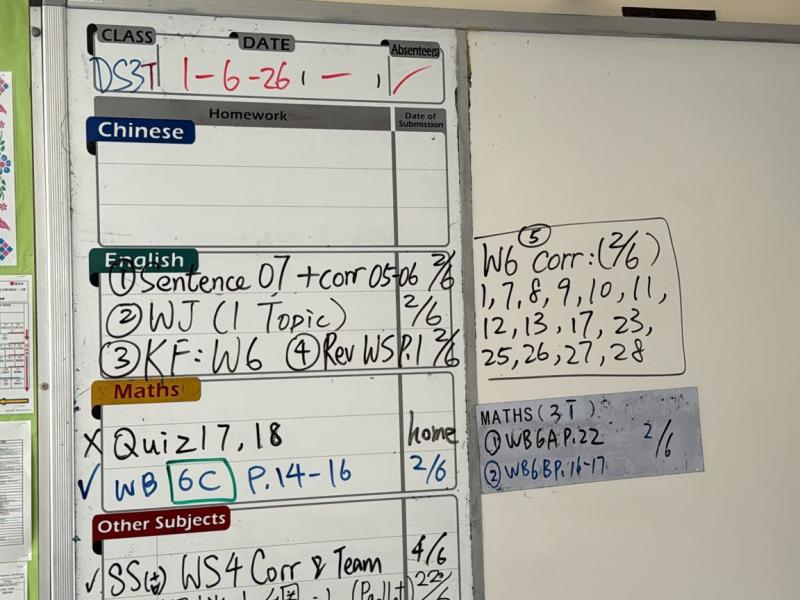 CLASS DATE Absentee(s)
DS3T 1-6-26 , - , ✓
Homework Date of Submission
Chinese
English
① Sentence 07 + corr 05-06 2/6
② WJ (1 Topic) 2/6
③ KF: W6 ④ Rev WS P.1 2/6
Maths
X Quiz 17, 18 home
✓ WB 6C P.14-16 2/6
Other Subjects
✓ SS WS4 Corr & Team 4/6
⑤
W6 corr: (2/6)
1, 7, 8, 9, 10, 11,
12, 13, 17, 23,
25, 26, 27, 28
MATHS (3T)
① WB6A P.22 2/6
② WB6B P.16-17